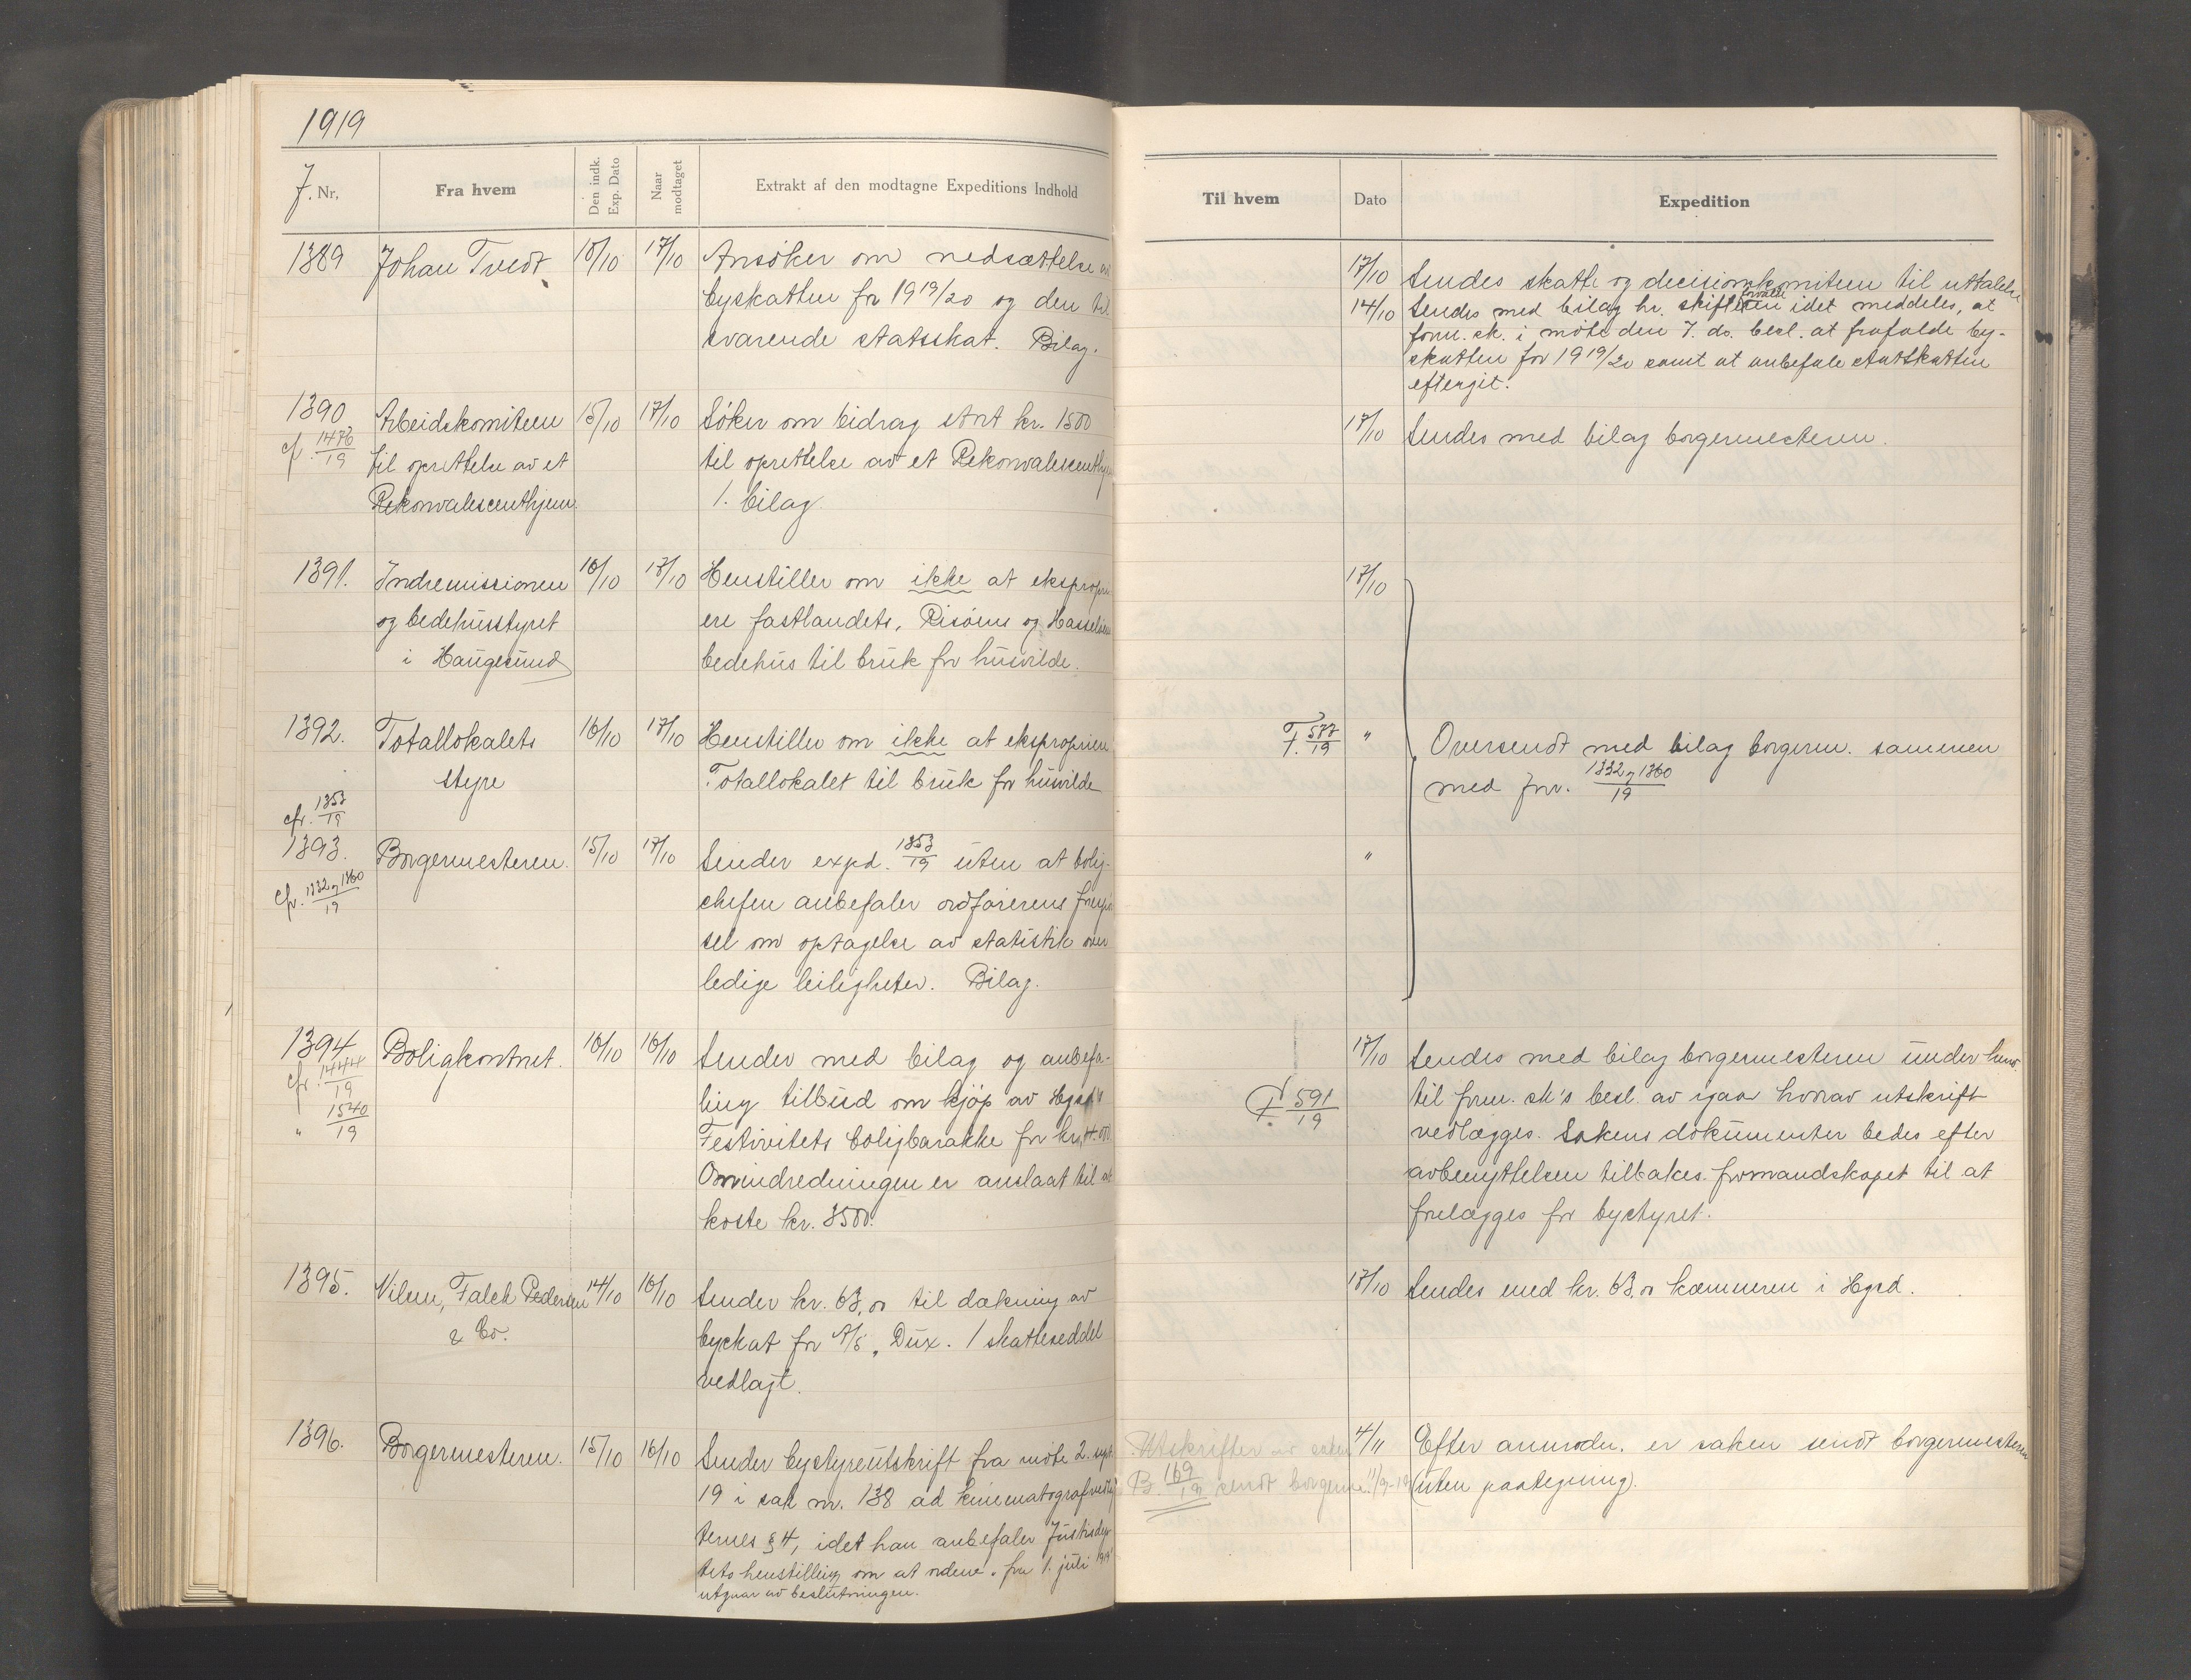 1919
J. Nr.
Fra hvem
Den indk. Exp. Dato
Naar modtaget
Extrakt af den modtagne Expeditions Indhold
Til hvem
Dato
Expedition
1389 Johan Tvedt 15/10 17/10 Ansöker om nedsættelse av
byskatten for 1919/20 og den til
svarende statsskat. Bilag.
17/10 Sendes skatte og decisionskomiteen til uttalelse
14/10 Sendes med bilag hr. skifteforvalteren idet meddeles, at
form.sk. i möte den 7. ds. besl. at frafalde by-
skatten for 1919/20 samt at anbefale statsskatten
eftergit.
1390 Arbeidskomiteen 15/10 17/10 Söker om bidrag stort kr. 1500
cf. 1476/19
til oprettelse av et
Rekonvalescenthjem.
til oprettelse av et Rekonvalescenthjem
1. bilag.
17/10 Sendes med bilag borgermesteren.
1391. Indremissionen 16/10 17/10 Henstiller om ikke at ekspropri
og bedehusstyret
i Haugesund
ere fastlandets, Risöens og Hasselöens
bedehus til bruk for husvilde.
17/10
1392. Totallokalets 16/10 17/10 Henstiller om ikke at ekspropriere
styre
Totallokalet til bruk for husvilde
F. 587/19 " Oversendt med bilag borgerm. sammen
med jnr. 1332 og 1360/19
cfr. 1353/19
1393. Borgermesteren. 15/10 17/10 Sender expd. 1353/19 uten at bolig-
cfr. 1332 og 1360/19
chefen anbefaler ordförerens forespör
sel om optagelse av statistik over
ledige leiligheter. Bilag.
"
1394 Boligkontoret. 16/10 16/10 Sender med bilag og anbefa-
cfr. 1444/19
" 1540/19
ling tilbud om kjöp av Hgsd's
Festivitets boligbarakke for kr.
Omindredningen er anslaat til at
koste kr. 3500.
17/10 Sendes med bilag borgermesteren under henv.
F. 591/19
til form.sk's besl. av igaar hvorav utskrift
vedlægges. Sakens dokumenter bedes efter
avbenyttelsen tilbakes. formandskapet til at
forelægges for bystyret.
1395. Nilsen, Falck Pedersen 14/10 16/10 Sender kr. 63,00 til dækning av
& Co.
byskat for A/S "Dux. 1 skatteseddel
vedlagt.
17/10 Sendes med kr. 63,00 kæmneren i Hgsd.
1396. Borgermesteren. 15/10 16/10 Sender bystyreutskrift fra möte 2. sept.
19 i sak nr. 138 ad kinematografvedtæg
ternes § 4, idet han anbefaler Justisdep
tets henstilling om at ordene "fra 1. juli 1919"
utgaar av beslutningen.
Utskrifter av saken
B 169/19 sendt borgerm. 11/9-19
4/11 Efter anmodn. er saken sendt borgermesteren
(uten paategning).